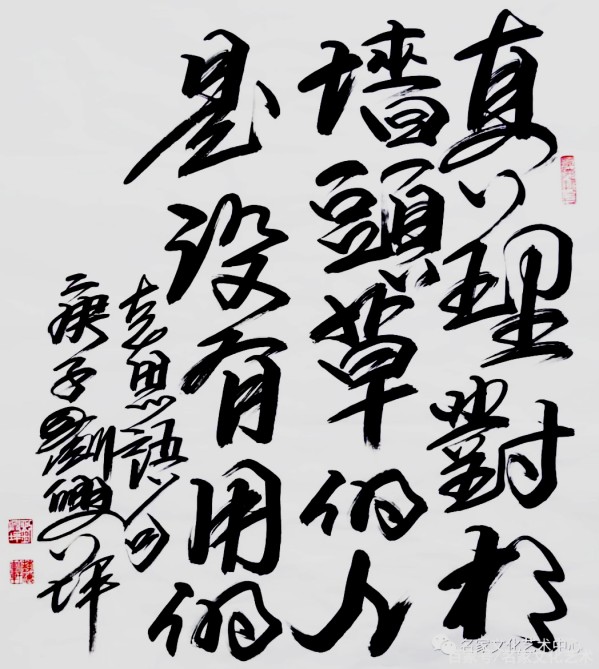 真理對於
墻頭草的人
是没有用的
思語
庚子劉雙坪
名家文化艺术中心